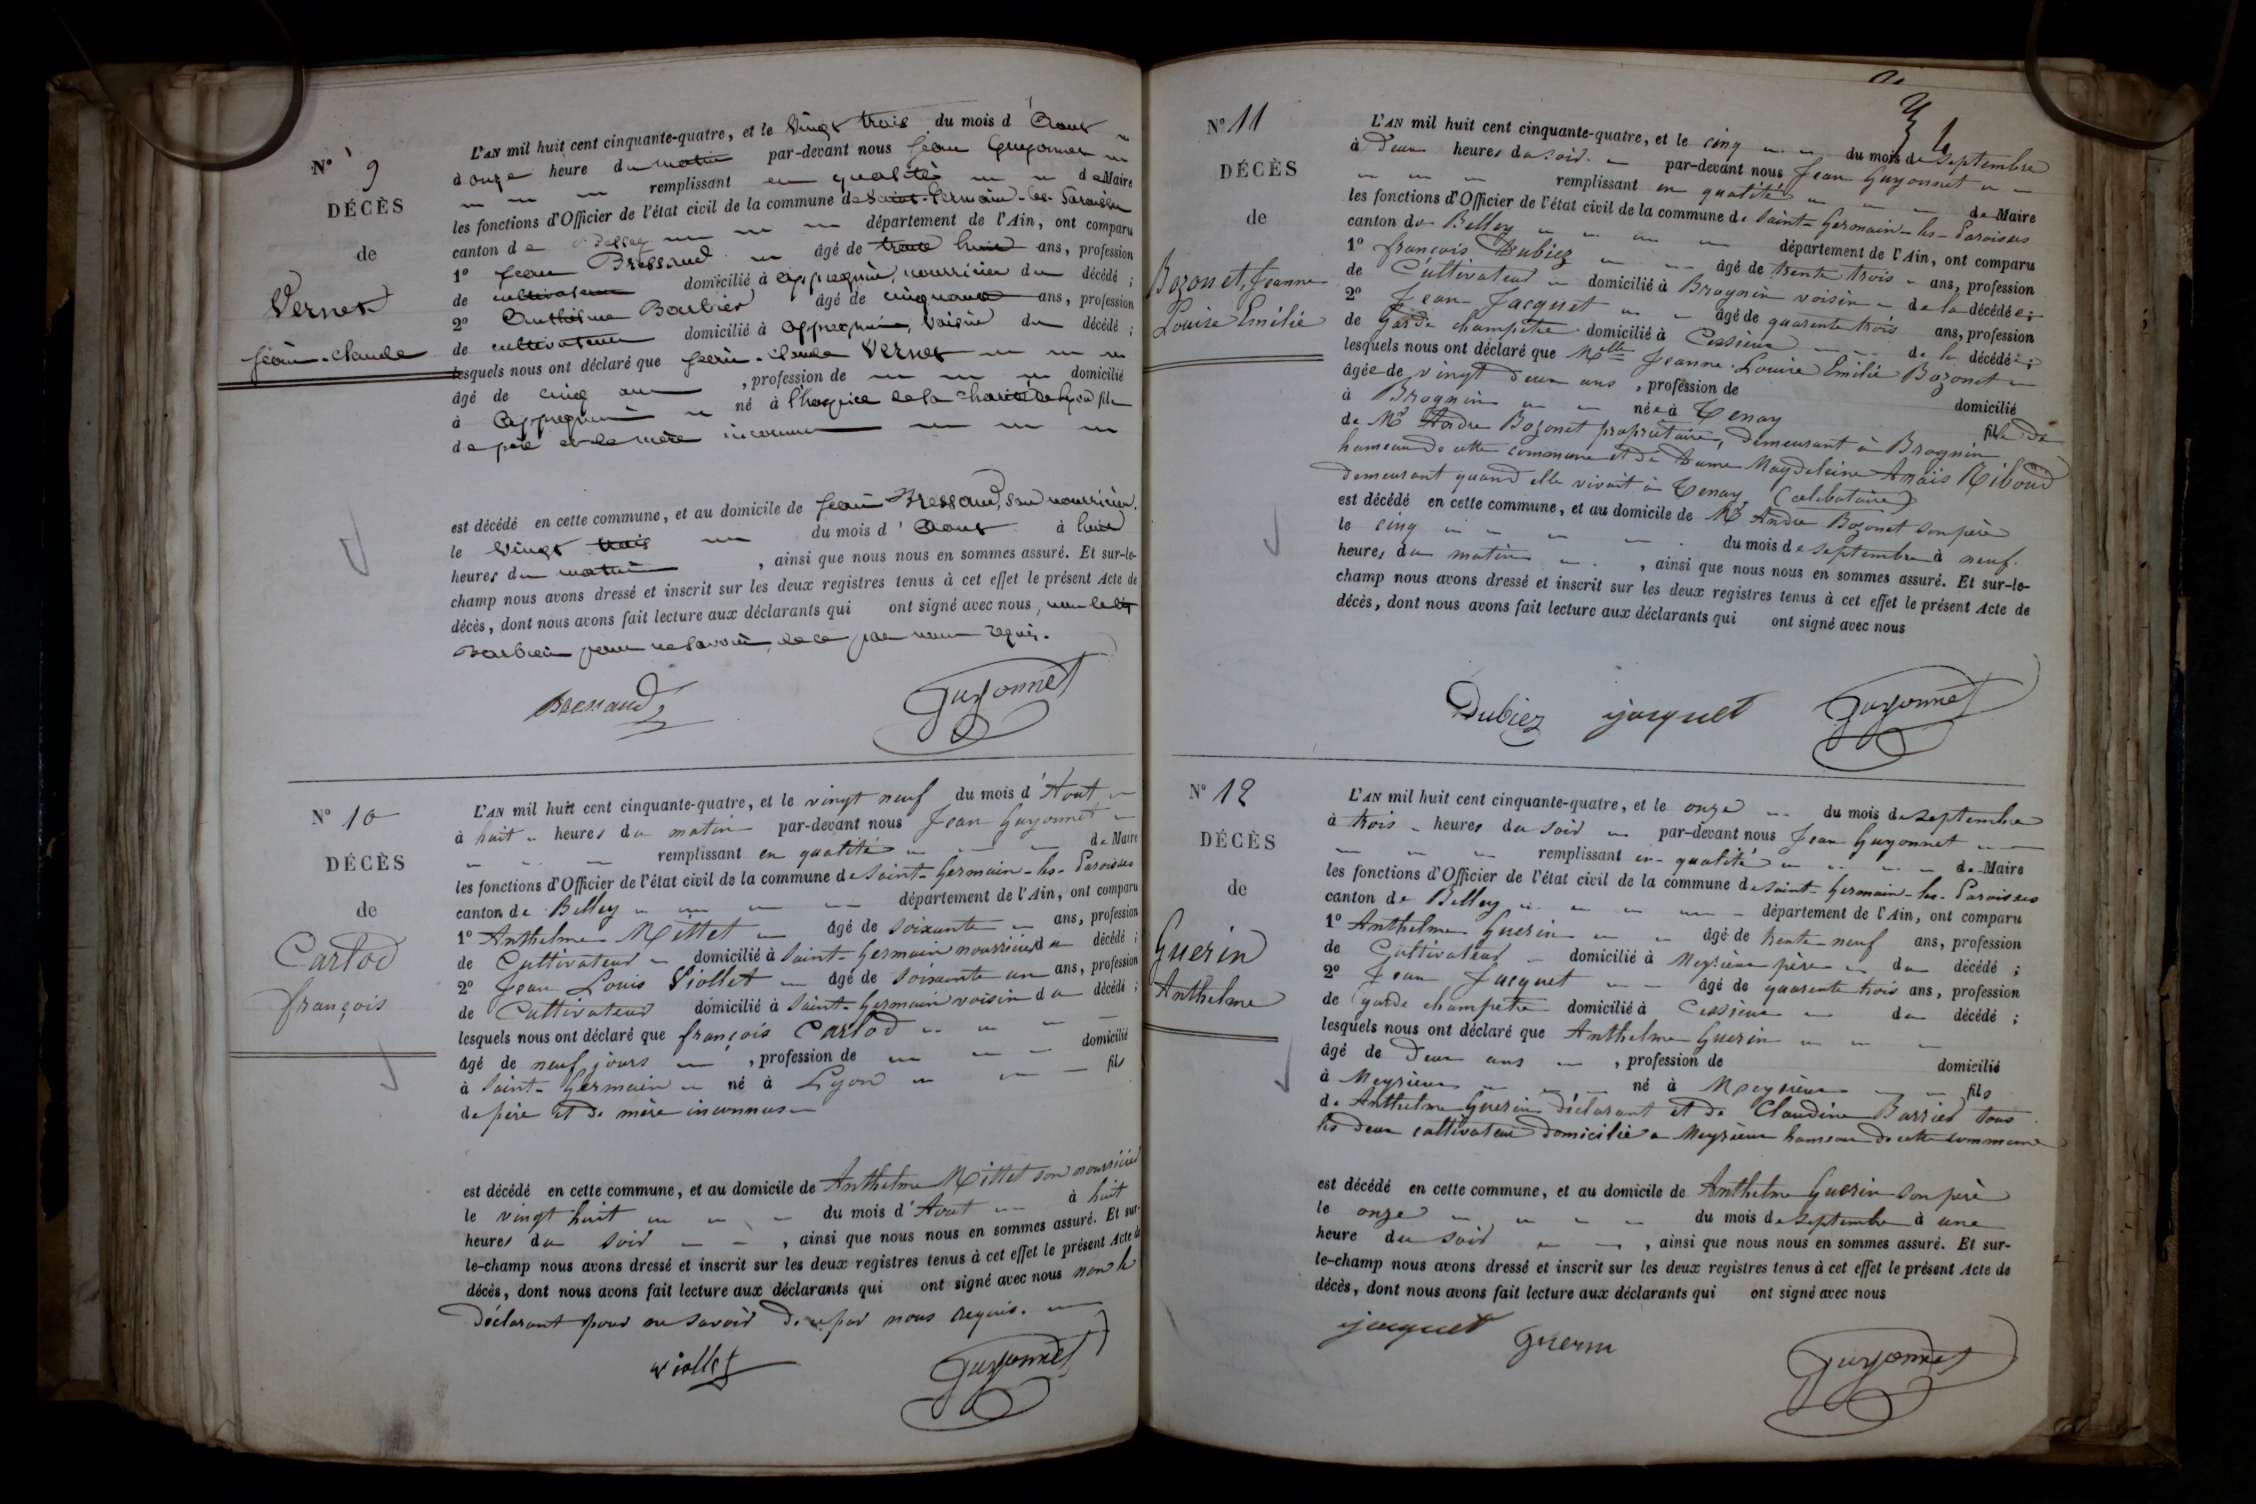 N° 9
DÉCÈS
de
Vernet
Jean-Claude
L'AN mil huit cent cinquante-quatre, et le vingt trois du mois d'Aout
à onze heure du matin par-devant nous Jean Guyonnet
remplissant en qualité de Maire
les fonctions d'Officier de l'état civil de la commune de Saint-Germain-les-Paroisses
canton de Belley département de l'Ain, ont comparu
1° Jean Bressaud âgé de trente huit ans, profession
de cultivateur domicilié à Appregnin, nourricier du décédé ;
2° Anthelme Barbier âgé de cinquante ans, profession
de cultivateur domicilié à Appregnin, voisin du décédé ;
lesquels nous ont déclaré que Jean-Claude Vernet
âgé de cinq ans , profession de domicilié
à Appregnin né à l'hospice de la charité de Lyon fils
de père et de mère inconnus
est décédé en cette commune, et au domicile de Jean Bressaud, son nourricier.
le vingt trois du mois d'Aout à huit
heures du matin , ainsi que nous nous en sommes assuré. Et sur-le-
champ nous avons dressé et inscrit sur les deux registres tenus à cet effet le présent Acte de
décès, dont nous avons fait lecture aux déclarants qui ont signé avec nous, non le dit
Barbier pour ne savoir, de ce par nous requis.
Bressaud Guyonnet
N° 10
DÉCÈS
de
Carlod
françois
L'AN mil huit cent cinquante-quatre, et le vingt neuf du mois d'Aout
à huit heures du matin par-devant nous Jean Guyonnet
remplissant en qualité de Maire
les fonctions d'Officier de l'état civil de la commune de Saint-Germain-les-Paroisses
canton de Belley département de l'Ain, ont comparu
1° Anthelme Mittet âgé de soixante ans, profession
de Cultivateur domicilié à Saint-Germain nourricier du décédé ;
2° Jean Louis Viollet âgé de soixante un ans, profession
de Cultivateur domicilié à Saint-Germain voisin du décédé ;
lesquels nous ont déclaré que françois Carlod
âgé de neuf jours , profession de domicilié
à Saint-Germain né à Lyon fils
de père et de mère inconnus
est décédé en cette commune, et au domicile de Anthelme Mittet son nourricier
le vingt huit du mois d'Aout à huit
heures du soir , ainsi que nous nous en sommes assuré. Et sur-
le-champ nous avons dressé et inscrit sur les deux registres tenus à cet effet le présent Acte de
décès, dont nous avons fait lecture aux déclarants qui ont signé avec nous non le
déclarant pour ne savoir de ce par nous requis.
Viollet Guyonnet
N° 11
DÉCÈS
de
Bozonet, Jeanne
Louise Emélie
L'AN mil huit cent cinquante-quatre, et le cinq du mois de septembre
à Deux heures du soir par-devant nous Jean Guyonnet
remplissant en qualité de Maire
les fonctions d'Officier de l'état civil de la commune de Saint-Germain-les-Paroisses
canton de Belley département de l'Ain, ont comparu
1° françois Dubiez âgé de trente trois ans, profession
de Cultivateur domicilié à Brognin voisin de la décédée ;
2° Jean Jacquet âgé de quarente trois ans, profession
de Garde champêtre domicilié à Cessieux de la décédée ;
lesquels nous ont déclaré que Melle Jeanne Louise Emélie Bozonet
âgée de vingt deux ans , profession de domicilié
à Brognin née à Tenay fille de
de Mr Andre Bozonet propriétaire, demeurant à Brognin
hameau de cette commune et de Dame Magdeleine Anaïs Riboud
demeurant quand elle vivait à Tenay (celibataire)
est décédé en cette commune, et au domicile de Mr Andre Bozonet son père
le cinq du mois de septembre à neuf
heures du matin , ainsi que nous nous en sommes assuré. Et sur-le-
champ nous avons dressé et inscrit sur les deux registres tenus à cet effet le présent Acte de
décès, dont nous avons fait lecture aux déclarants qui ont signé avec nous
Dubiez jacquet Guyonnet
N° 12
DÉCÈS
de
Guerin
Anthelme
L'AN mil huit cent cinquante-quatre, et le onze du mois de septembre
à trois heures du soir par-devant nous Jean Guyonnet
remplissant en qualité de Maire
les fonctions d'Officier de l'état civil de la commune de Saint-Germain-les-Paroisses
canton de Belley département de l'Ain, ont comparu
1° Anthelme Guerin âgé de trente neuf ans, profession
de Cultivateur domicilié à Meyrieux père du décédé ;
2° Jean Jacquet âgé de quarente trois ans, profession
de garde champetre domicilié à Cessieux du décédé ;
lesquels nous ont déclaré que Anthelme Guerin
âgé de Deux ans , profession de domicilié
à Meyrieux né à Meyrieux fils
de Anthelme Guerin déclarant et de Claudine Barrier tous
les deux cultivateur domicilié a Meyrieux hameau de cette commune
est décédé en cette commune, et au domicile de Anthelme Guerin son père
le onze du mois de septembre à une
heure du soir , ainsi que nous nous en sommes assuré. Et sur-
le-champ nous avons dressé et inscrit sur les deux registres tenus à cet effet le présent Acte de
décès, dont nous avons fait lecture aux déclarants qui ont signé avec nous
jacquet Guerin Guyonnet